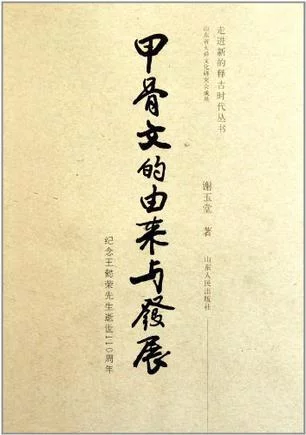 走进新的释古时代丛书
山东省大舜文化研究会
谢玉堂 著
山东人民出版社
甲骨文的由来与發展
纪念王懿荣先生逝世110周年